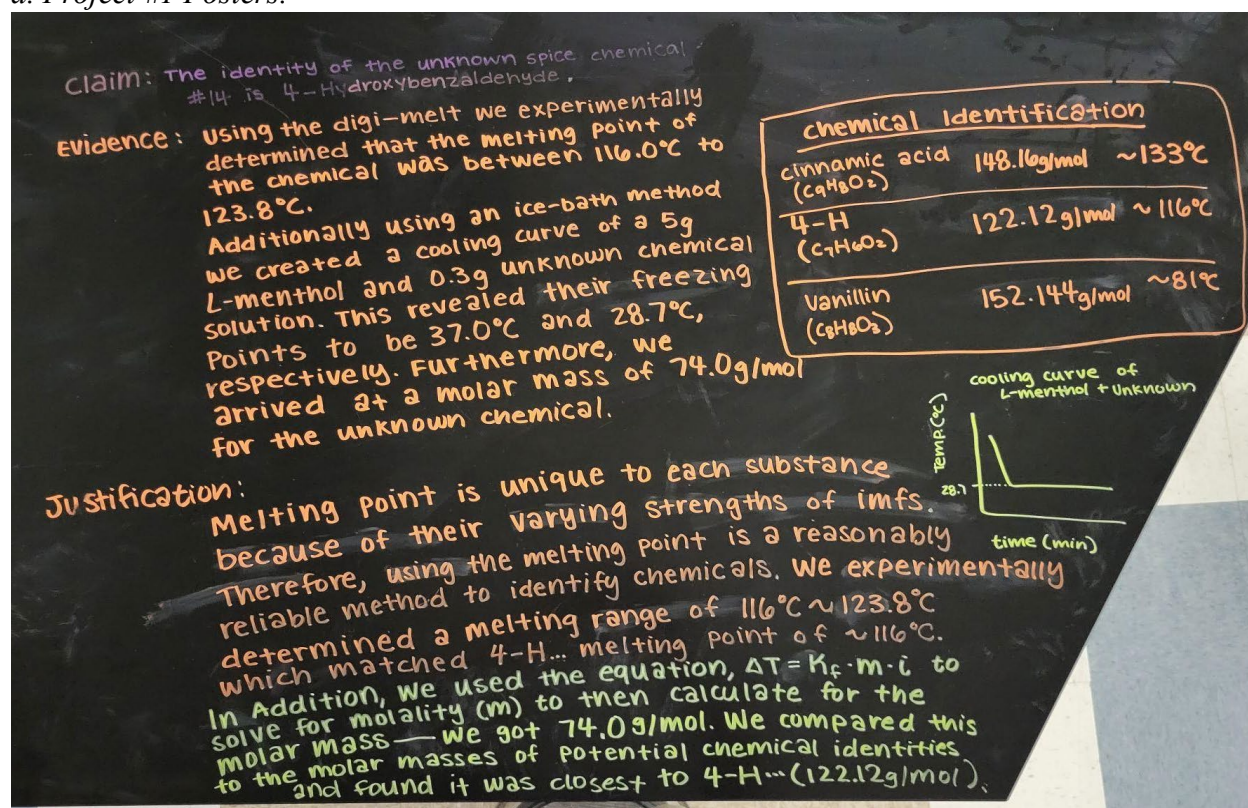 a. Project #1 Posters:
Claim: The identity of the unknown spice chemical
#14 is 4-Hydroxybenzaldehyde.
Evidence: Using the digi-melt we experimentally
determined that the melting point of
the chemical was between 116.0°C to
123.8°C.
Additionally using an ice-bath method
we created a cooling curve of a 5g
L-menthol and 0.3g unknown chemical
solution. This revealed their freezing
points to be 37.0°C and 28.7°C,
respectively. Furthermore, we
arrived at a molar mass of 74.0g/mol
for the unknown chemical.
Chemical Identification
cinnamic acid 148.16g/mol ~133°C
(C9H8O2)
4-H 122.12g/mol ~116°C
(C7H6O2)
Vanillin 152.144g/mol ~81°C
(C8H8O3)
cooling curve of
L-menthol + Unknown
Temp.(°C)
28.7
time (min)
Justification:
Melting point is unique to each substance
because of their varying strengths of imfs.
Therefore, using the melting point is a reasonably
reliable method to identify chemicals. We experimentally
determined a melting range of 116°C ~ 123.8°C
which matched 4-H... melting point of ~116°C.
In Addition, we used the equation, ΔT = Kf · m · i to
solve for molality (m) to then calculate for the
molar mass — we got 74.0g/mol. We compared this
to the molar masses of potential chemical identities
and found it was closest to 4-H... (122.12g/mol).